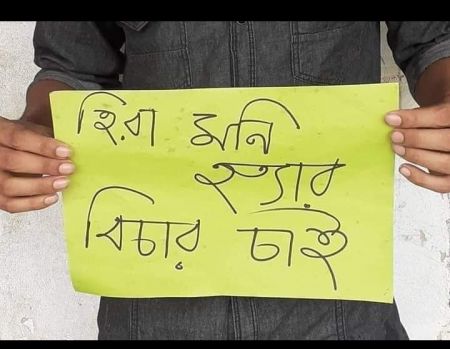 হিরা মনি
হত্যার
বিচার চাই